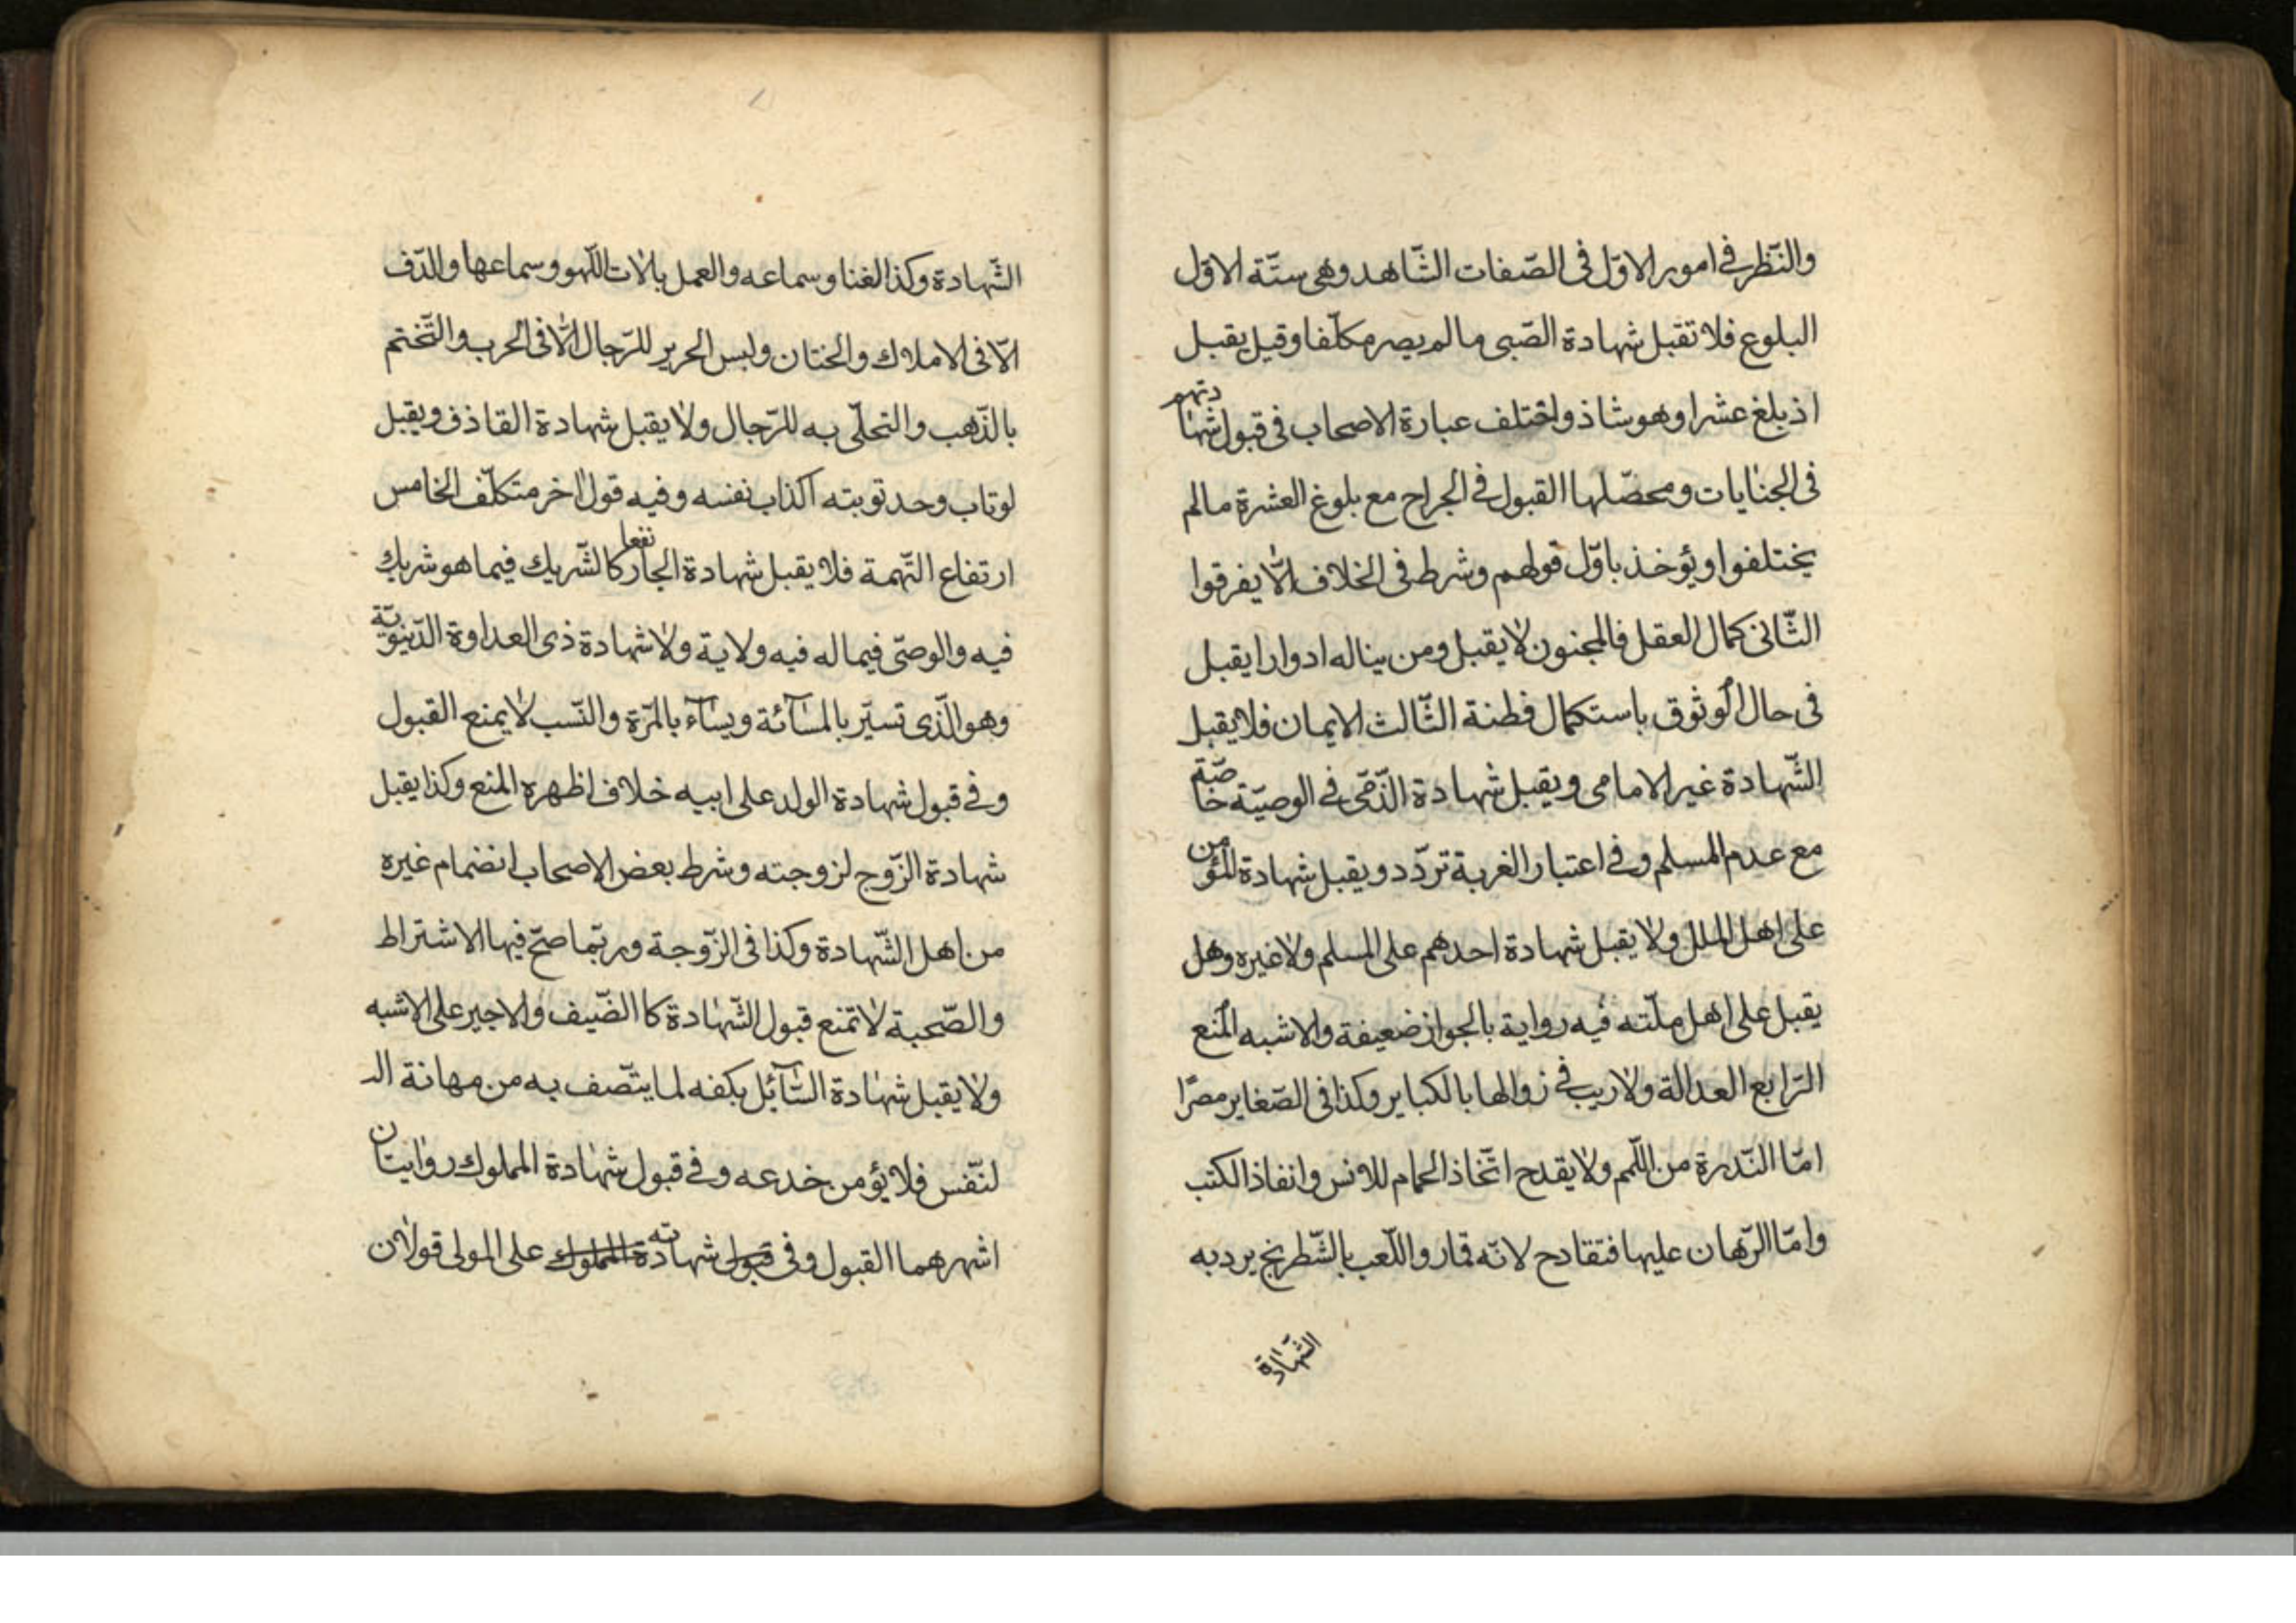 والنّظر في امور الاوّل فى الصّفات الشّاهد وهى ستّة الاوّل
البلوغ فلا تقبل شهادة الصّبى مالم يصر مكلّفا وقيل يقبل
اذ بلغ عشرا وهو شاذ واختلف عبارة الاصحاب فى قبول شهادتهم
فى الجنايات ومحصّلها القبول في الجراح مع بلوغ العشرة مالم
يختلفوا ويؤخذ باوّل قولهم وشرط فى الخلاف الّا يفرقوا
الثّانى كمال العقل فالمجنون لا يقبل ومن يناله ادوارا يقبل
فى حال الوثوق باستكمال فطنة الثّالث الايمان فلا يقبل
الشّهادة غير الامامى ويقبل شهادة الذّمّى في الوصيّة خاصّة
مع عدم المسلم وفي اعتبار الغربة تردّد ويقبل شهادة المؤمن
على اهل الملل ولا يقبل شهادة احدهم على المسلم ولا غيره وهل
يقبل على اهل ملّته فيه رواية بالجواز ضعيفة والاشبه المنع
الرّابع العدالة ولا ريب في زوالها بالكباير وكذا فى الصّغاير مصرًّا
امّا النّدرة من اللّمم ولا يقدح اتّخاذ الحمام للانس وانفاذ الكتب
وامّا الرّهان عليها فتقادح لانّه قمار واللّعب بالشّطرنج يرد به
الشّهادة
الشّهادة وكذا الغنا وسماعه والعمل بالات اللّهو وسماعها والدّف
الّا فى الاملاك والختان ولبس الحرير للرّجال الّا فى الحرب والتّختم
بالذّهب والتحلّى به للرّجال ولا يقبل شهادة القاذف ويقبل
لو تاب وحد توبته اكذاب نفسه وفيه قول اخر متكلّف الخامس
ارتفاع التّهمة فلا يقبل شهادة الجار نفعا كالشّريك فيما هو شريك
فيه والوصىّ فيما له فيه ولاية ولا شهادة ذى العداوة الدّنيويّة
وهو الّذى تسيّر بالمسآئة ويسآء بالمرّة والنّسب لا يمنع القبول
وفي قبول شهادة الولد على ابيه خلاف اظهره المنع وكذا يقبل
شهادة الزّوج لزوجته وشرط بعض الاصحاب انضمام غيره
من اهل الشّهادة وكذا فى الزّوجة وربّما صحّ فيها الاشتراط
والصّحبة لا تمنع قبول الشّهادة كا الضّيف والاجير على الاشبه
ولا يقبل شهادة السّآئل بكفه لما يتّصف به من مهانة الـ
لنّفس فلا يؤمن خدعه وفي قبول شهادة المملوك روايتان
اشهرهما القبول وفى قبول شهادته المملوك على المولى قولان